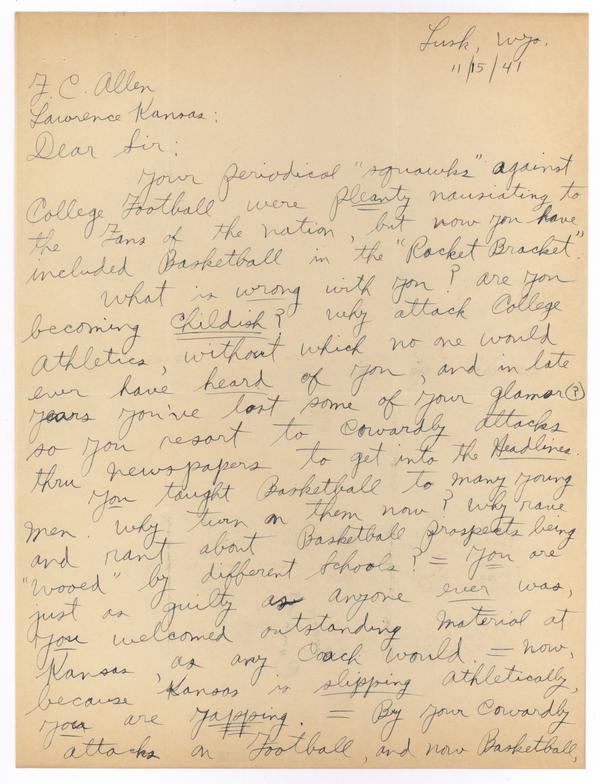 Lusk, Wyo.
11/15/41
F. C. Allen
Lawrence Kansas:
Dear Sir:
Your periodical "squawks" against
College Football were pleanty nausiating to
the Fans of the nation, but now you have
included Basketball in the "Racket Bracket".
What is wrong with you? are you
becoming childish? why attack College
Athletics, without which no one would
ever have heard of you, and in late
years you've lost some of your glamor(?)
so you resort to cowardly attacks
thru newspapers to get into the Headlines.
You taught Basketball to many young
men. Why turn on them now? Why rave
and rant about Basketball prospects being
"wooed" by different schools? = You are
just as guilty as anyone ever was,
you welcomed outstanding material at
Kansas, as any Coach would. = Now,
because Kansas is slipping athletically,
you are yapping. = By your cowardly
attacks on Football, and now Basketball,